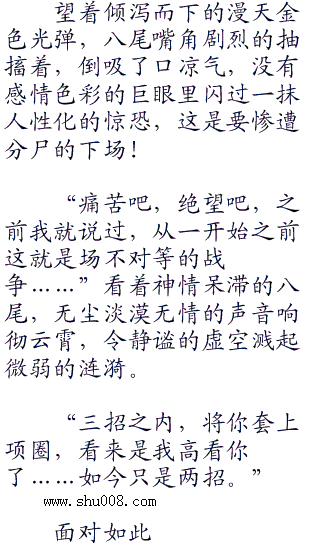 望着倾泻而下的漫天金
色光弹，八尾嘴角剧烈的抽
搐着，倒吸了口凉气，没有
感情色彩的巨眼里闪过一抹
人性化的惊恐，这是要惨遭
分尸的下场！
“痛苦吧，绝望吧，之
前我就说过，从一开始之前
这就是场不对等的战
争……”看着神情呆滞的八
尾，无尘淡漠无情的声音响
彻云霄，令静谧的虚空溅起
微弱的涟漪。
“三招之内，将你套上
项圈，看来是我高看你
了……如今只是两招。”
www.shu008.com
面对如此